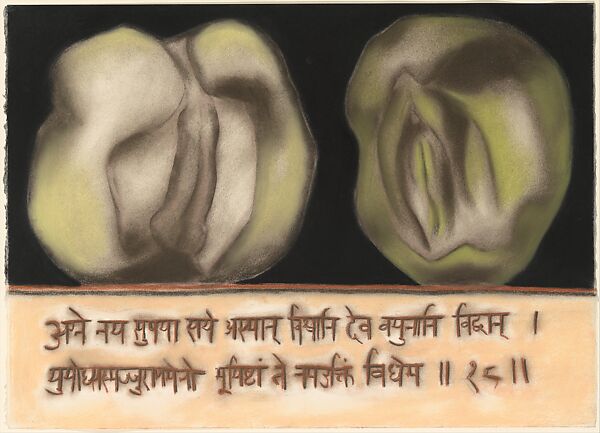 अग्ने नय सुपथा राये अस्मान् विश्वानि देव वयुनानि विद्वान् ।
युयोध्यस्मज्जुराणमेनो भूयिष्टां ते नमउक्तिं विधेम ॥ १८ ॥